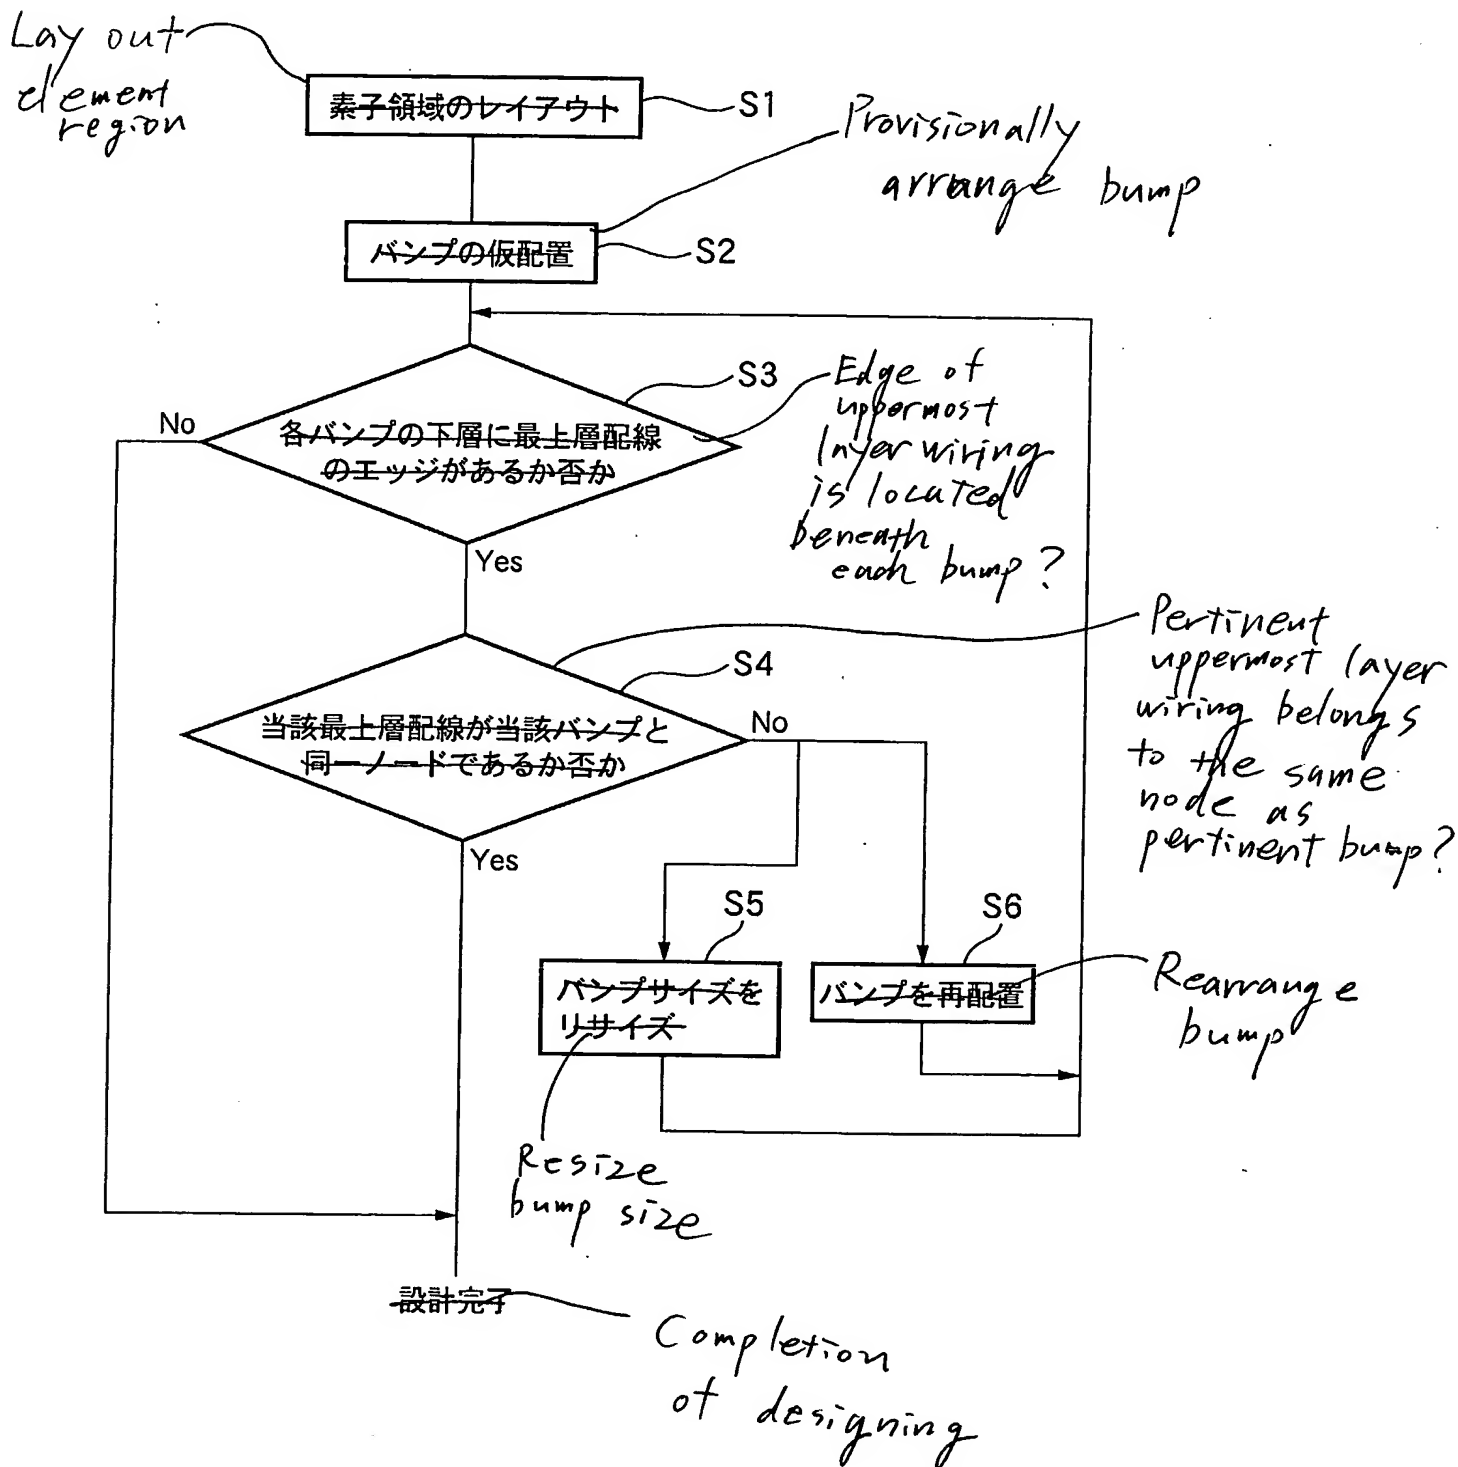 Lay out
element
region
素子領域のレイアウト
S1
Provisionally
arrange bump
バンプの仮配置
S2
S3
Edge of
uppermost
layer wiring
is located
beneath
each bump?
No
各バンプの下層に最上層配線
のエッジがあるか否か
Yes
Pertinent
uppermost layer
wiring belongs
to the same
node as
pertinent bump?
S4
No
当該最上層配線が当該バンプと
同一ノードであるか否か
Yes
S5
S6
バンプサイズを
リサイズ
バンプを再配置
Rearrange
bump
Resize
bump size
設計完了
Completion
of designing